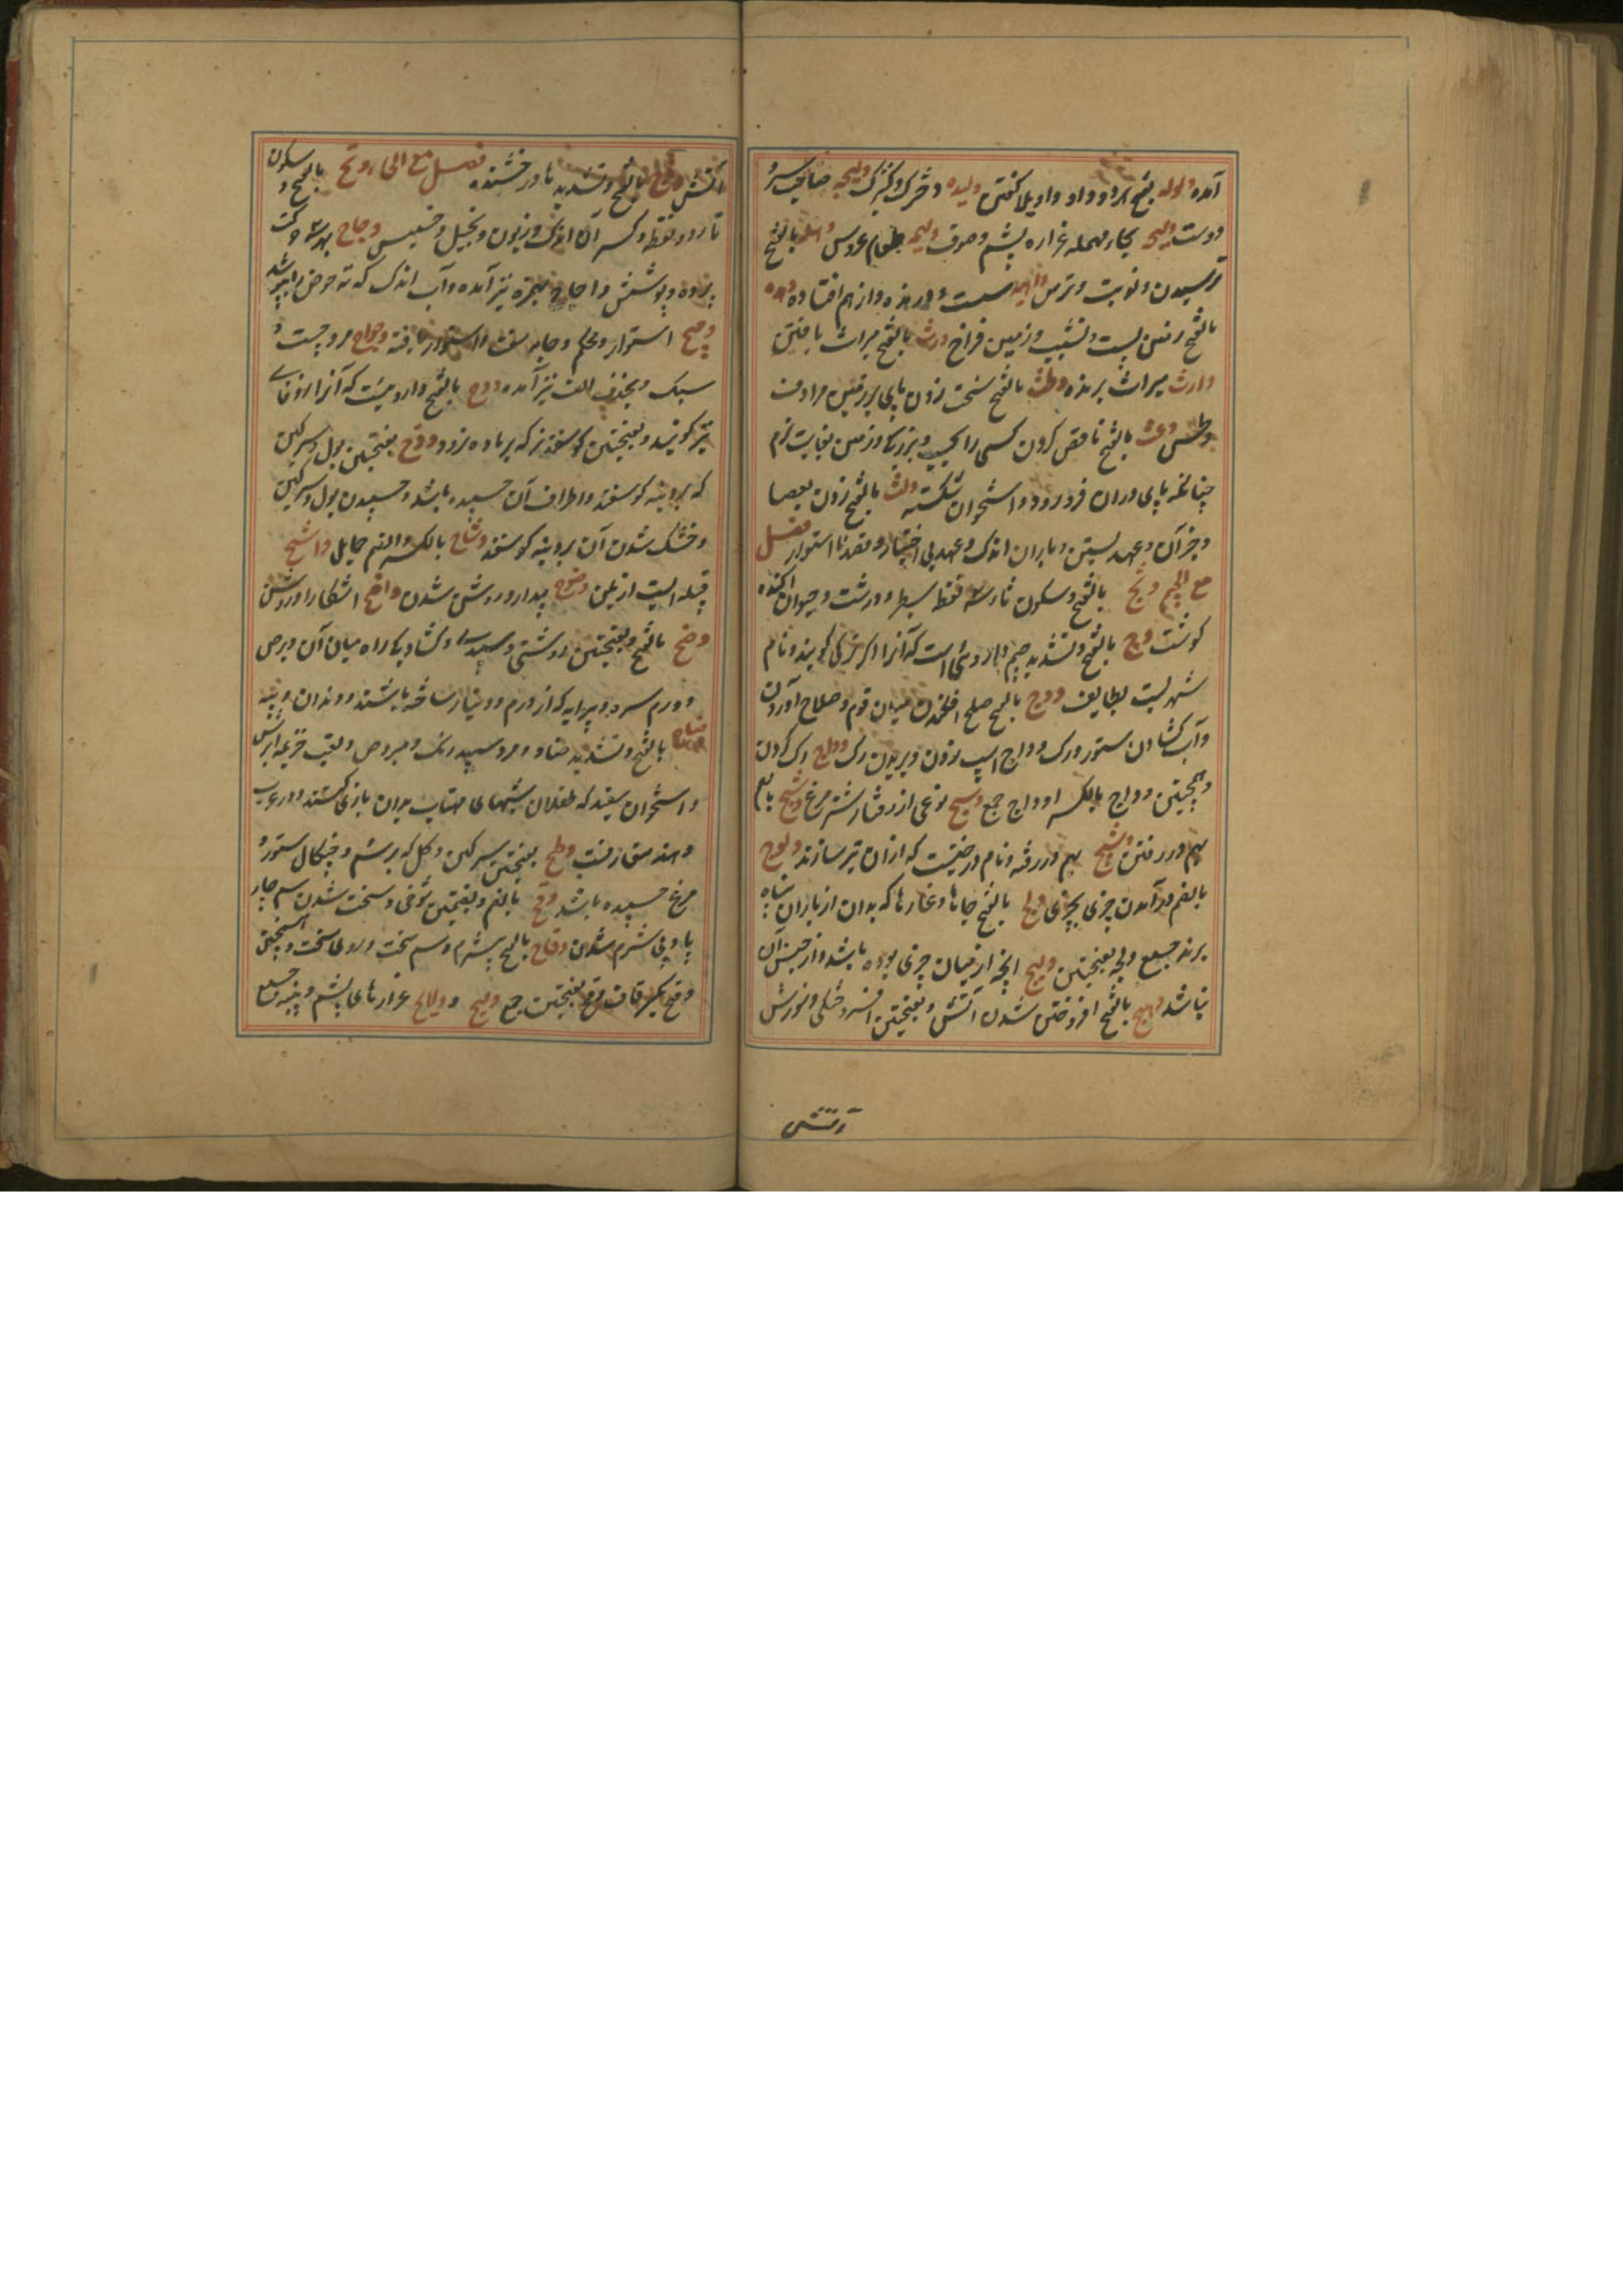 آمده ولوله بفتح هر دو واو واویلا گفتن ولیده دخترک و کنیزک ولیجه صاحب سر و
دوست ولیحه بحاء مهمله غراره پشم و صوف ولیمه طعام عروس وهله بالفتح
ترسیدن و نوبت و ترس واهیه سست و درنده و از هم افتاده وهده
بالفتح زمین پست و نشیب و زمین فراخ ورث بالفتح میراث یافتن
وارث میراث برنده وطث بالفتح سخت زدن پای بر زمین مرادف
وطس وعث بالفتح ناقص کردن کسی را و زمین بغایت نرم
چنانکه پای دران فرو رود و استخوان شکسته ولث بالفتح زدن بعصا
و جز آن و عهد بستن و باران اندک و عهد بی اختیار و نا استوار فصل
مع الجیم وثج بالفتح و سکون ثاء سه نقطه سطبر و درشت و حیوان آکنده
گوشت وج بالفتح و تشدید جیم داروئی است که آنرا اکر ترکی گویند و نام
شهریست بطایف ودج بالفتح صلح افکندن میان قوم و صلاح آوردن
و آب کشادن ستور و رک وداج اسپ زدن و بریدن رک وداج رک گردن
و بفتحتین وداج بالکسر اوداج جمع وسیج نوعی از رفتار شتر مرغ وشج بالفتح
بهم در رفتن وشیج بهم در رفته و نام درختیست که ازان تیر سازند ولوج
بالضم درآمدن چیزی بچیزی ولج بالفتح جاها و غارها که بدان از باران پناه
برند جمع ولجه بفتحتین ولیج آنچه از میان چیزی بوده باشد و از جنس آن
نباشد وهج بالفتح افروختن شدن آتش و بفتحتین افروختگی و سوزش
آتش
آتش وهاج بالفتح و تشدید ها درخشنده فصل مع الحاء وتح بالفتح و سکون
تاء دو نقطه و کسر آن اندک و زبون و بخیل و خسیس وجاح بهر سه حرکت
پرده و پوشش و اجاح بهمزه نیز آمده و آب اندک که ته حوض را بپوشد
وجیح استوار و محکم و جامه سفت و استوار بافته وحواح مرد چست و
سبک و بحذف الف نیز آمده ودح بالفتح دارویست که آنرا
نیز گویند و بفتحتین گوسفند نر که بر ماده نرود وذح بفتحتین بول و سرگین
که بر دنبه گوسفند و اطراف آن چسبیده باشد و چسپیدن بول و سرگین
و خشک شدن آن بر دنبه گوسفند وشاح بالکسر و الضم حمایل واشح
قبیله ایست از یمن وضوح پیدا و روشن شدن واضح آشکارا و روشن
وضح بالفتح و بفتحتین روشنی و سپیدی و کشادگی راه میان آن و برص
و درم سره و پیرایه که از درم و دینار ساخته باشند و دندان و پنبه
وضاح بالفتح و تشدید ضاد مرد سپید رنگ و مبروص و لقب خزیمه ابرش
و استخوان سفید که طفلان شبهای مهتاب بدان بازی کنند و در عرب
و هند متعارفست وطح بفتحتین سرگین و گل که بر سم و چنگال ستور و
مرغ چسپیده باشد وقح بالضم و بضمتین شوخی و سخت شدن سم چار
پا و بی شرم شدن وقاح بالفتح بیشرم و سم سخت و روی سخت و همچنین
وقح بکسر قاف وقح بضمتین جمع ولیح و ولایح غرارهای پشم و پنبه جمع